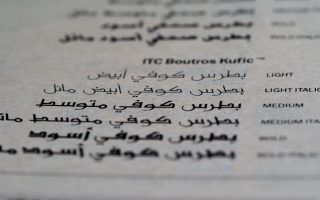 بطرس صحفي أسود
بطرس صحفي أسود مائل
ITC Boutros Kufic™
بطرس كوفي أبيض LIGHT
بطرس كوفي أبيض مائل LIGHT ITALIC
بطرس كوفي متوسط MEDIUM
بطرس كوفي متوسط مائل MEDIUM ITALIC
بطرس كوفي أسود BOLD
بطرس كوفي أسود مائل BOLD ITALIC